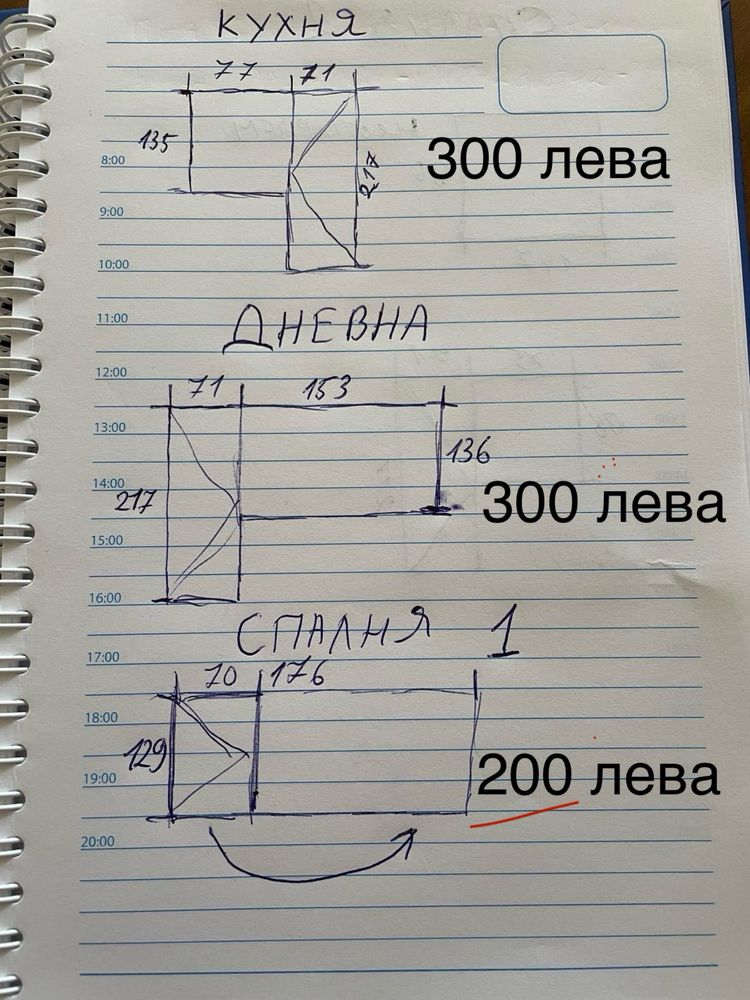 КУХНЯ
77 71
135
217
300 лева
8:00
9:00
10:00
11:00
ДНЕВНА
12:00
71 153
13:00
136
14:00
217
300 лева
15:00
16:00
СПАЛНЯ 1
17:00
70 176
18:00
129
200 лева
19:00
20:00